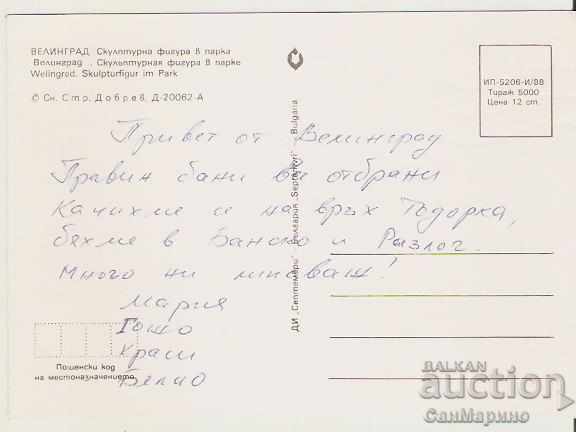 ВЕЛИНГРАД Скулптурна фигура в парка
Велинград . Скульптурная фигура в парке
Welingrad. Skulpturfigur im Park
© Сн. Стр. Добрев, Д-20062-А
ИП-5206-И/88
Тираж 5000
Цена 12 ст.
Привет от Велинград
Правим бани ви отбрани
Качихме се на връх Тодорка,
бяхме в Банско и Разлог.
Много ни липсваш!
Мария
Гошо
Краси
Пощенски код
на местоназначението
ДИ „Септември" България „Septemvri" — Bulgaria
BALKAN
auction
СанМарино